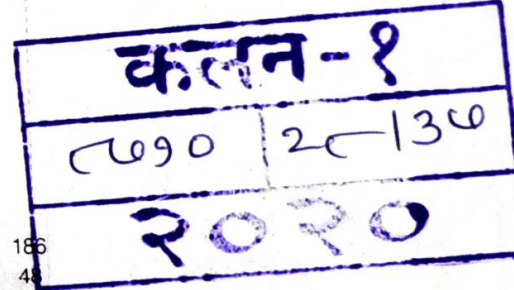 कलन-१
८७१० २८/३७
२०२०
186
48